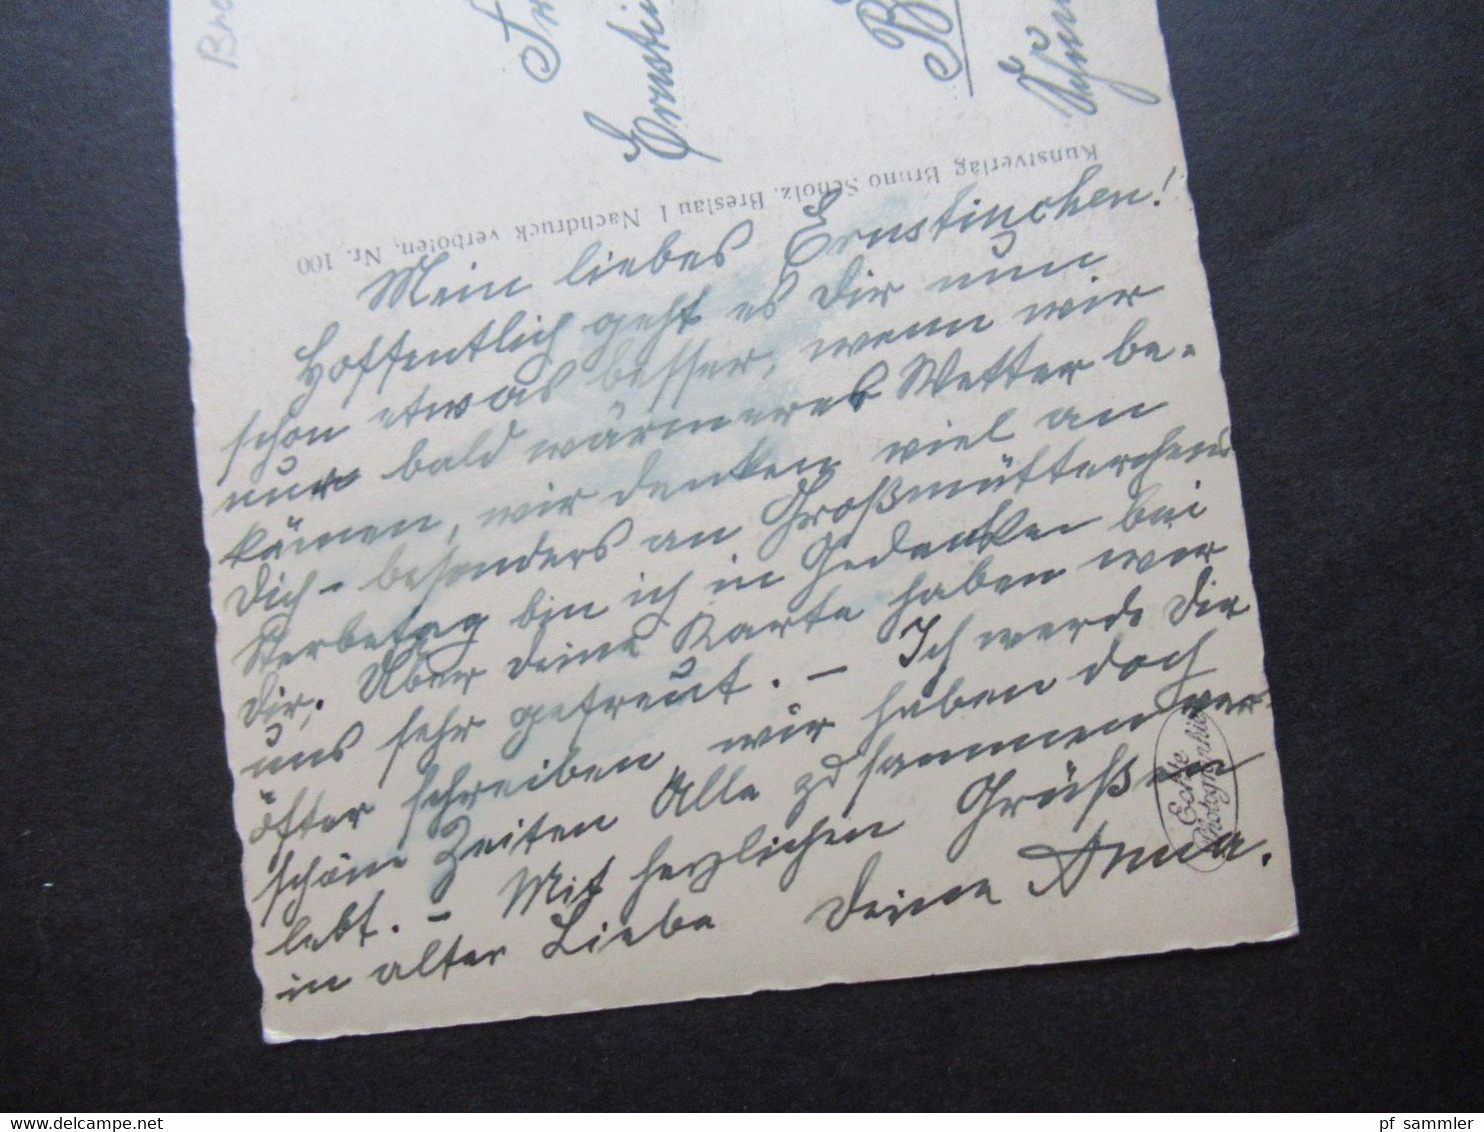 Fr
Ernstine
B
Kunstverlag Bruno Scholz, Breslau I Nachdruck verboten, Nr. 100
Mein liebes Ernstinchen!
Hoffentlich geht es Dir nun
schon etwas besser, wenn wir
nur bald wärmeres Wetter be-
kämen, wir denken viel an
Dich - besonders an Großmütterchens
Sterbetag bin ich in Gedanken bei
Dir. Über deine Karte haben wir
uns sehr gefreut. - Ich werde Dir
öfter schreiben wir haben doch
schöne Zeiten Alle zusammen ver-
lebt. - Mit herzlichen Grüßen
in alter Liebe Deine Anna.
Echte
Photographie
pf_sammler